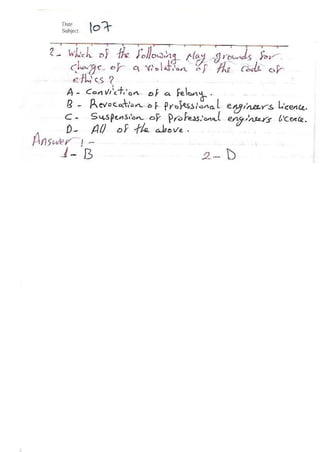 Date
Subject 107
2- Which of the following may grounds for
charge of a violation of the code of
ethics?
A - Conviction of a felony.
B - Revocation of professional engineers licence.
C - Suspension of professional engineers licence.
D- All of the above.
Answer:-
1- B 2- D